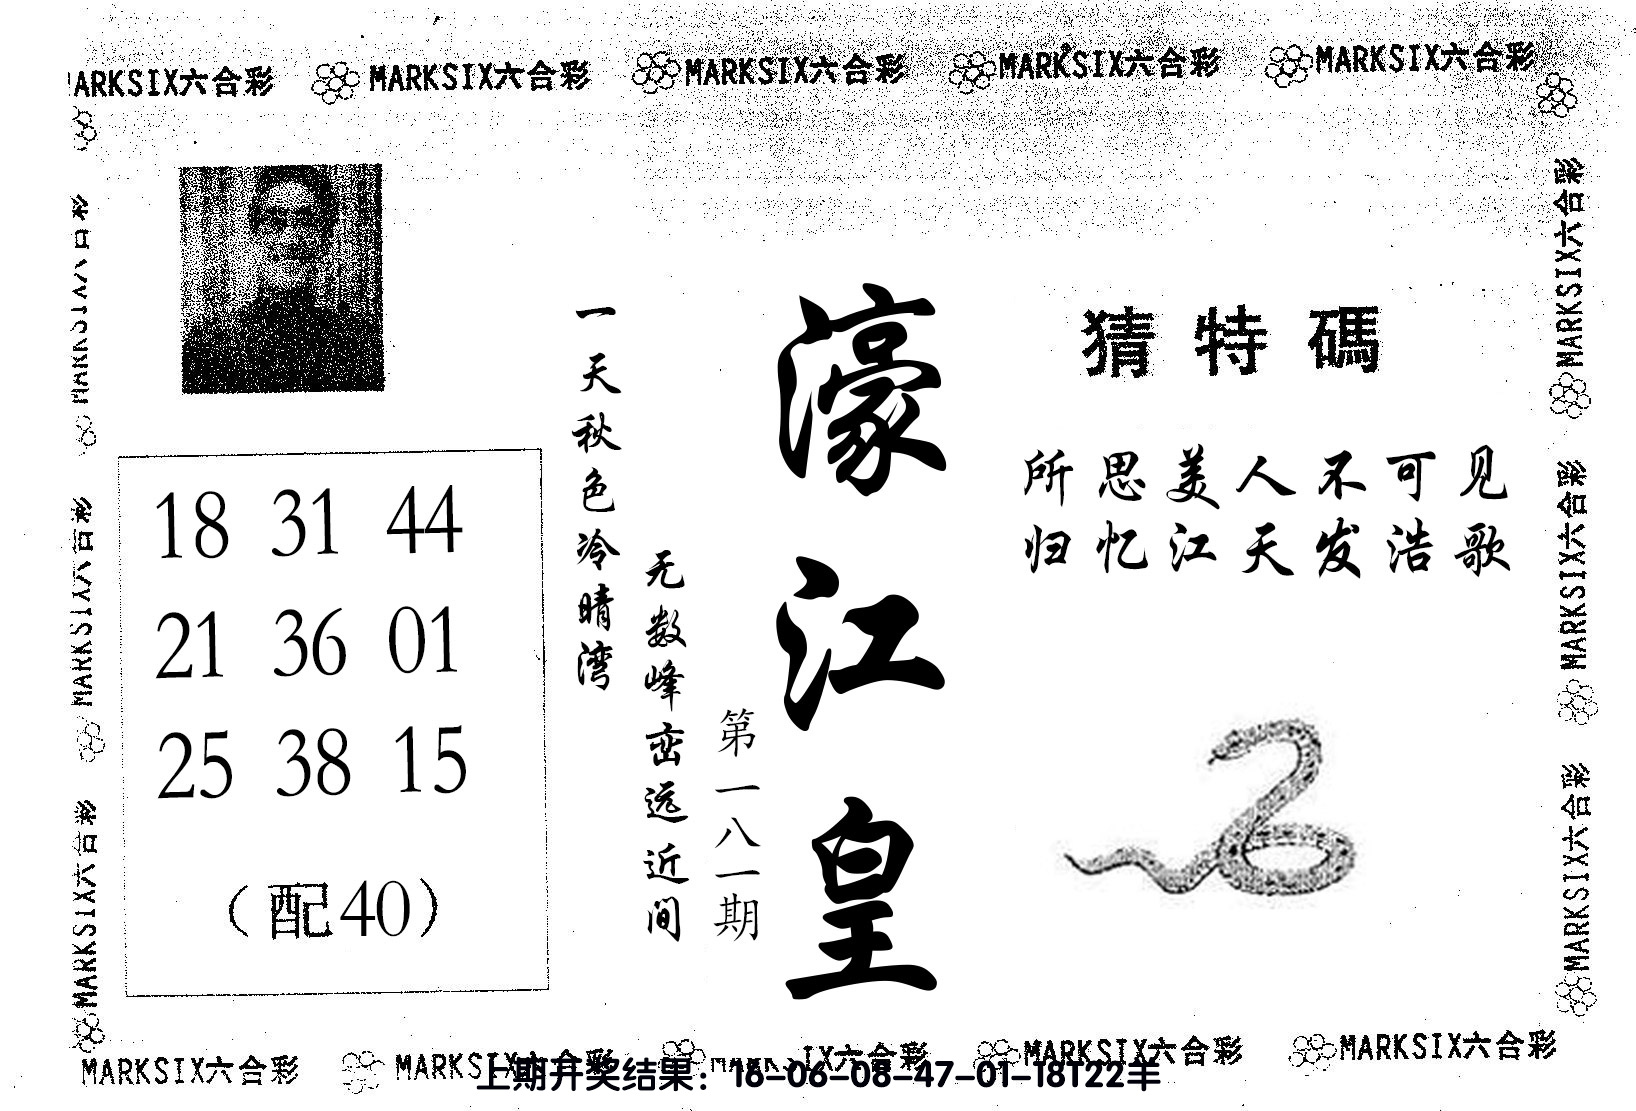 MARKSIX六合彩 MARKSIX六合彩 MARKSIX六合彩 MARKSIX六合彩 MARKSIX六合彩
猜特碼
所思美人不可见
归忆江天发浩歌
濠江皇
第一八一期
一天秋色冷晴湾
无数峰峦远近间
18 31 44
21 36 01
25 38 15
（配40）
MARKSIX六合彩
MARKSIX六合彩
MARKSIX六合彩
MARKSIX六合彩
MARKSIX六合彩
MARKSIX六合彩
MARKSIX六合彩 MARKSIX六合彩 MARKSIX六合彩 MARKSIX六合彩
上期开奖结果：16-06-08-47-01-18T22羊